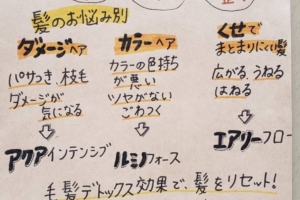 髪のお悩み別
ダメージヘア
パサつき、枝毛
ダメージが
気になる
アクアインテンシブ
カラーヘア
カラーの色持ち
が悪い
ツヤがない
ごわつく
ルミノフォース
くせで
まとまりにくい髪
広がる、うねる
はねる
エアリーフロー
毛髪デトックス効果で、髪をリセット!